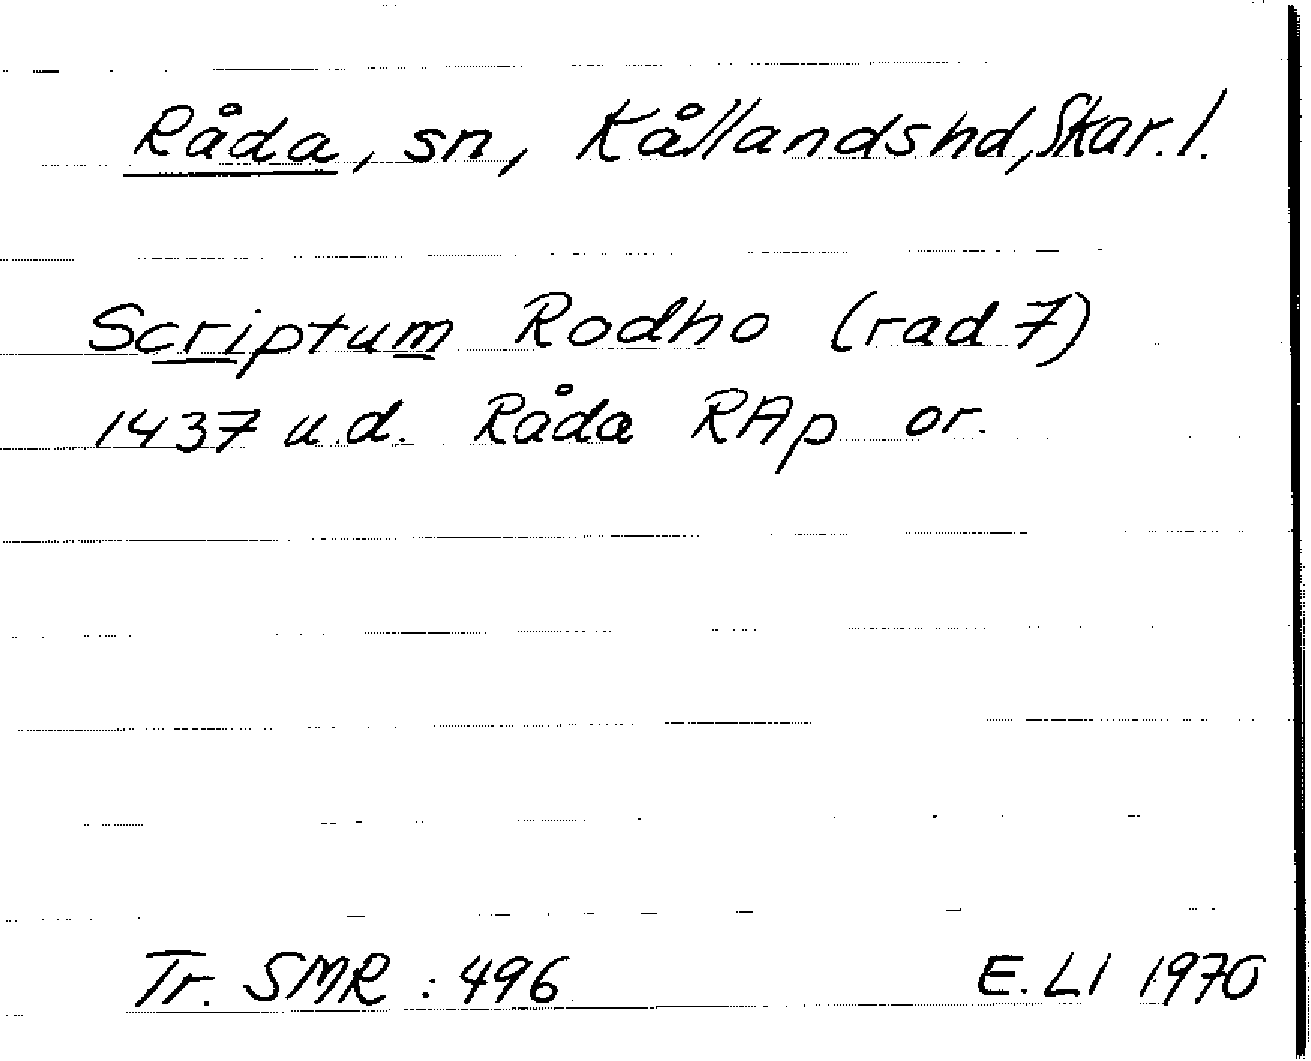 Råda, sn, Kållandshd, Skar. l.
Scriptum Rodho (rad 7)
1437 u.d. Råda RAp or.
Tr. SMR : 496 E. LI 1970